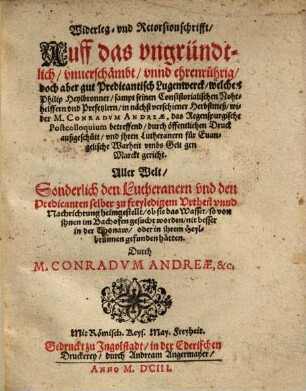 Widerleg- vnd Retorsionschrifft/
Auff das vngründt-
lich/ vnuerschämbt/ vnnd ehrenrührig/
doch aber gut Predicantisch Lugenwerck/ welches
Philip Heylbronner/ sampt seinen Consistorialischen Noht-
helffern vnd Preßeylern/ in nächst verschiener Herbstmeß/ wi-
der M. CONRADVM ANDREÆ, das Regenspurgische
Postcolloquium betreffend/ durch öffentlichen Druck
außgeschütt/ vnd ihren Lutheranern für Euan-
gelische Warheit vmbs Gelt gen
Marckt gericht.
Aller Welt/
Sonderlich den Lutheranern vnd den
Predicanten selber zu freyledigem Vrtheil vnnd
Nachrichtung heimgestellt/ ob sie das Wasser/ so von
ihnen im Bachofen gesucht worden/ nit besser
in der Thonaw/ oder in ihrem Heyl-
brunnen gefunden hätten.
Durch
M. CONRADVM ANDREÆ, &c.
Mit Römisch. Keys. May. Freyheit.
Gedruckt zu Ingolstadt/ in der Ederischen
Druckerey/ durch Andream Angermayer/
ANNO M. DCIII.